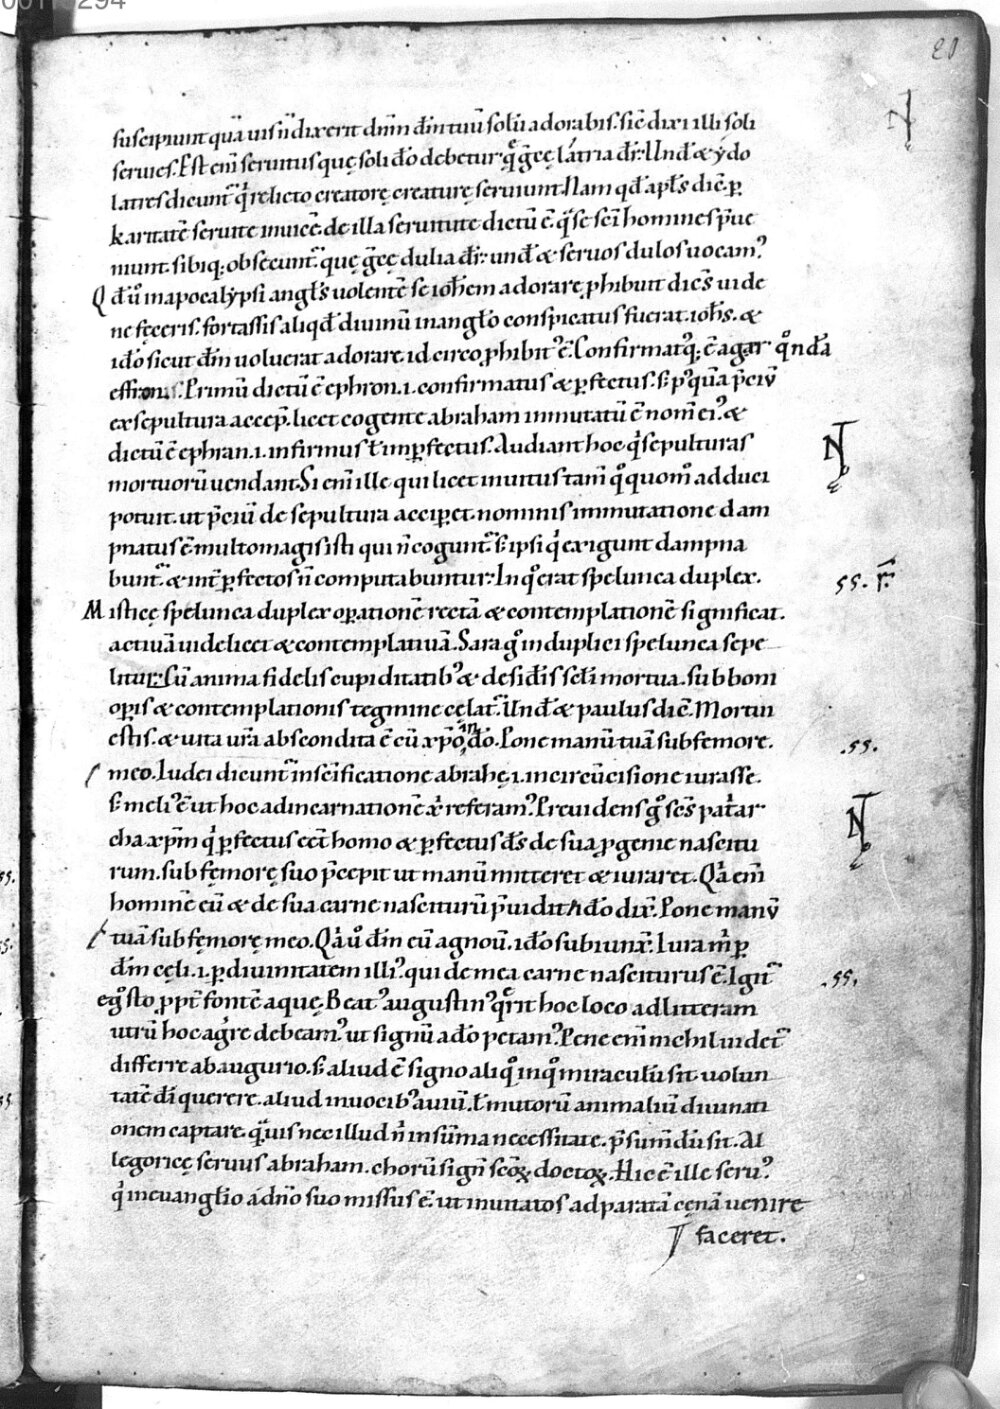 21
suscipiunt quā uis ñ dixerit dn̄m dm̄ tuū solū adorabis. sic̄ dixi illi soli
seruies. Est enī seruitus quę soli dō debetur. q̄ grecę latria dr̄. Vnd̄ & ydo
latres dicunt᷑ qⁱ relicto creatorę creaturę seruiunt. Nam qd̄ apl̄s dic̄. ꝑ
karitatē seruite inuicē. de illa seruitute dictū ē. qⁱ se sc̄i homines p̄ue
niunt. sibiq; obsecunt᷑. quę grecę dulia dr̄. und̄ & seruos dulos uocam᷒
Qd̄ ů in apocalẏpsi angl̄s uolentē se ioh̄em adorare, ꝓhibuit dicēs uide
ne fęceris. fortassis aliqd̄ diuinū in angl̄o conspicatus fuerat. ioh̄s. &
idō sicut dm̄ uoluerat adorare. id circo ꝓhibit᷒ ē. Confirmatq; ē agar qͦndā
effronis. Primū dictū ē ephron .i. confirmatus & ꝑfectus. s; pͦquā p̄ciū
ex sepultura accep̄. licet cogente abraham inmutatū ē nom̄ ei᷒. &
dictū ē ephran .i. infirmus ł imꝑfectus. Audiant hoc qⁱ sepulturas
mortuorū uendant. Si enī ille qui licet inuitus tam̄ qͦquom̄ adduci
potuit. ut p̄ciū de sepultura acciꝑet. nominis inmutatione dam
pnatus ē multo magis isti qui ñ cogunt᷑. s; ipsi qⁱ exigunt dampna
bunt᷑. & int̄ ꝑfectos ñ computabuntur. In qͦ erat spelunca duplex.
55. F̄
Misticę spelunca duplex oꝑationē rectā & contemplationē significat.
actiuā uidelicet & contemplatiuā. Sara gͦ in duplici spelunca sepe
litur. cū anima fidelis cupiditatib᷒ & desid̄iis scl̄i mortua. sub boni
oꝑis & contemplationis tegmine cęlat᷑. Vnd̄ & paulus dic̄. Mortui
estis. & uita ur̄a abscondita ē cū xp̄o in dō. Pone manū tuā sub femore.
.55.
meo. Iudei dicunt᷑ in scīficatione abrahę .i. in circūcisione iurasse.
s; meli᷒ ē ut hoc ad incarnationē xⁱ referam᷒. Preuidens gͦ sc̄s pat̄ar
cha xp̄m qⁱ ꝑfectus eēt homo & ꝑfectus ds̄ de sua ꝓgenie nascitu
rum. sub fęmorę suo p̄cepit ut manū mitteret & iuraret. Qⁱa enī
hominē eū & de sua carne nasciturū p̄uidit. idō dix̄. Pone manū
tuā sub femorę meo. Qⁱa ů dm̄ eū agnou̅. idō subiunx̄. Iura m̄ ꝑ
dm̄ cęli .i. ꝑ diuinitatem illi᷒. qui de mea carne nasciturus ē. Igit᷑
.55.
egͦ sto ꝓpt̄ fontē aquę. Beat᷒ augustin᷒ qͬrit hoc loco ad litteram
utrū hoc agͬe debeam᷒. ut signū a dō petam᷒. Pene enī nichil uidet᷑
differre ab augurio. s; aliud ē signo aliqͦ in qͦ miraculū sit uolun
tatē dī querere. aliud in uocib᷒ auiū. ł mutorū animaliū diuinati
onem captare. q̄uis nec illud nⁱ in sūma necessitate. p̄sumdū sit. Al
legoricę seruus abraham. chorū sign̄ sc̄oꝝ doctoꝝ. Hic ē ille seru᷒
qⁱ in euangl̄io a dn̄o suo missus ē. ut inuitatos ad paratā cęnā uenire
faceret.